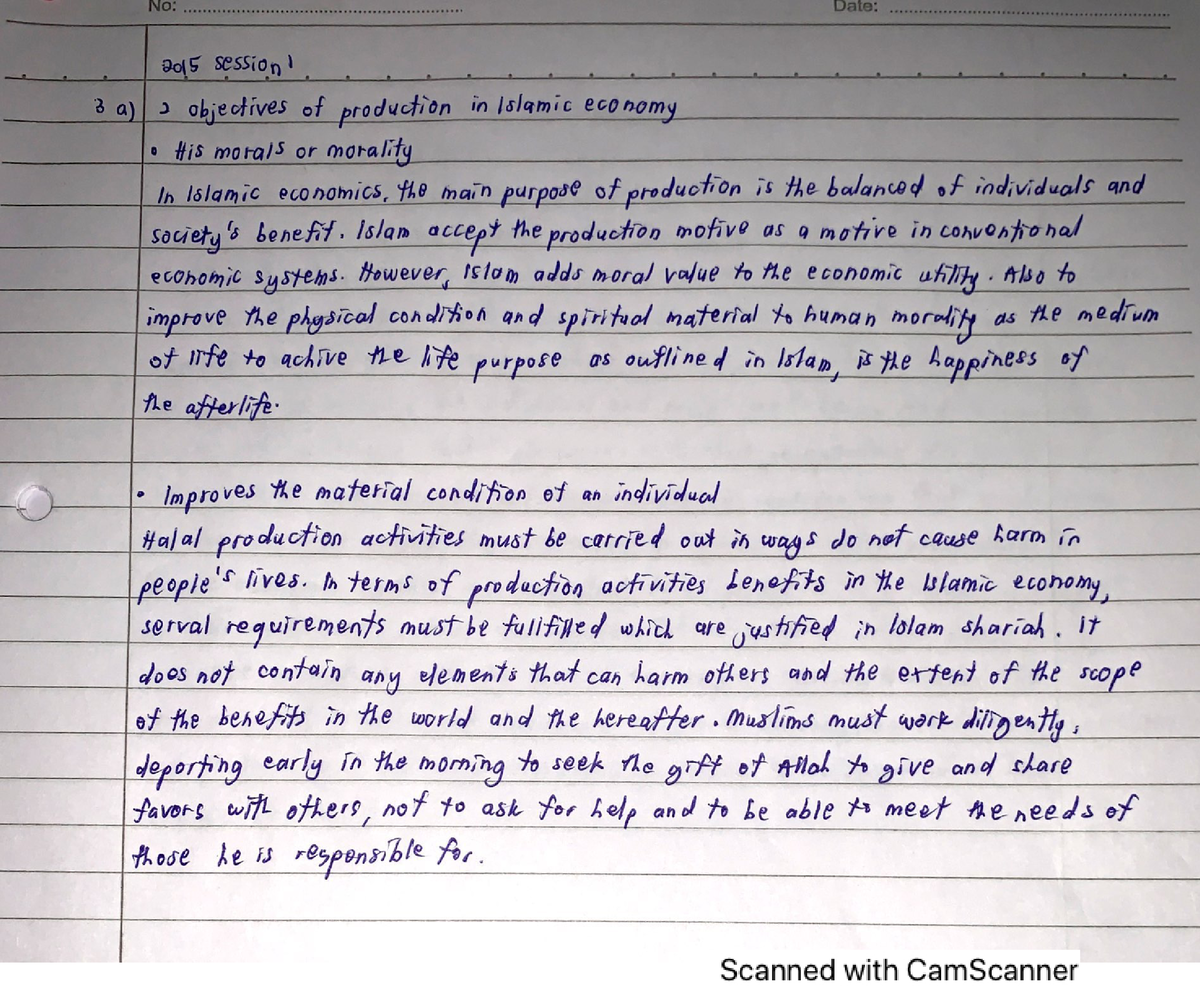 No: Date:
2015 session 1
3 a) 2 objectives of production in Islamic economy
• His morals or morality
In Islamic economics, the main purpose of production is the balanced of individuals and
society's benefit. Islam accept the production motive as a motive in conventional
economic systems. However, Islam adds moral value to the economic utility. Also to
improve the physical condition and spiritual material to human morality as the medium
of life to achive the life purpose as outlined in Islam, is the happiness of
the afterlife.
• Improves the material condition of an individual
Halal production activities must be carried out in ways do not cause harm in
people's lives. In terms of production activities benefits in the Islamic economy,
serval requirements must be fullfilled which are justified in Islam shariah. it
does not contain any elements that can harm others and the extent of the scope
of the benefits in the world and the hereafter. Muslims must work diligently,
deporting early in the morning to seek the gift of Allah to give and share
favors with others, not to ask for help and to be able to meet the needs of
those he is responsible for.
Scanned with CamScanner